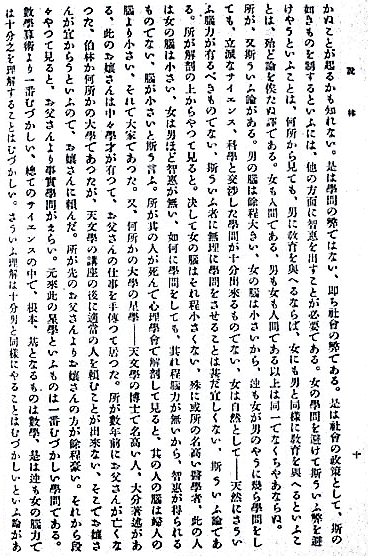 説林
十
かぬことが起るかも知れない。是は學問の弊ではない、即ち社會の弊である。是は社會の政策として、斯の
如きものを制するといふには、他の方面に智惠を出すことが必要である。女の學問を避けて斯ういふ弊を避
けやうといふことは、何所から見ても、男に敎育を與へるならば、女にも男と同樣に敎育を與へるといふこ
とは、殆ど論を俟たぬ譯である。女も人間である、男も女も人間である以上は同一でなくちやあならぬ。
所が、又斯ういふ論がある。男の腦は餘程大きい、女の腦は小さいから、迚も女が男のやうに幾ら學問をし
ても、立派なサイエンス、科學と交渉した學問が十分出來るものでない、女は自然として――天然にさうい
ふ腦力が有るべきものでない、斯ういふ者に無理に學問をさせることは甚だ宜しくない、斯ういふ論であ
る。所が解剖の上からやつて見ると、決して女の腦はそれ程小さくない、殊に或所の名高い醫學者、此の人
は女の腦は小さい、女は男ほど智惠が無い、如何に學問をしても、其れ程腦力が無いから、智惠が得られる
ものでない、腦が小さいと斯う言ふ。所が其の人が死んで心理學會で解剖して見ると、其の人の腦は婦人の
腦より小さい、それで大家であつた。又、何所かの大學の星學――天文學の博士で名高い人、大分著述があ
る、此のお孃さんは中々學才が有つて、お父さんの仕事を手傳つて居つた。所が數年前にお父さんが亡くな
つた、伯林か何所かの大學であつたが、天文學の講座の後に適當の人を頼むことが出來ない、そこでお孃さ
んが宜からうといふので、お孃さんに頼んだ。所が先のお父さんよりお孃さんの方が餘程豪い。それから段
々やつて見ると、お父さんより事實學問がえらい。元來此の星學といふものは一番むづかしい學問である。
數學算術より一番むづかしい、總てのサイエンスの中で、根本、基となるものは數學、是は迚も女の腦力で
は十分之を理解することはむづかしい。さういふ理解は十分男と同樣にやることはむづかしいといふ論があ